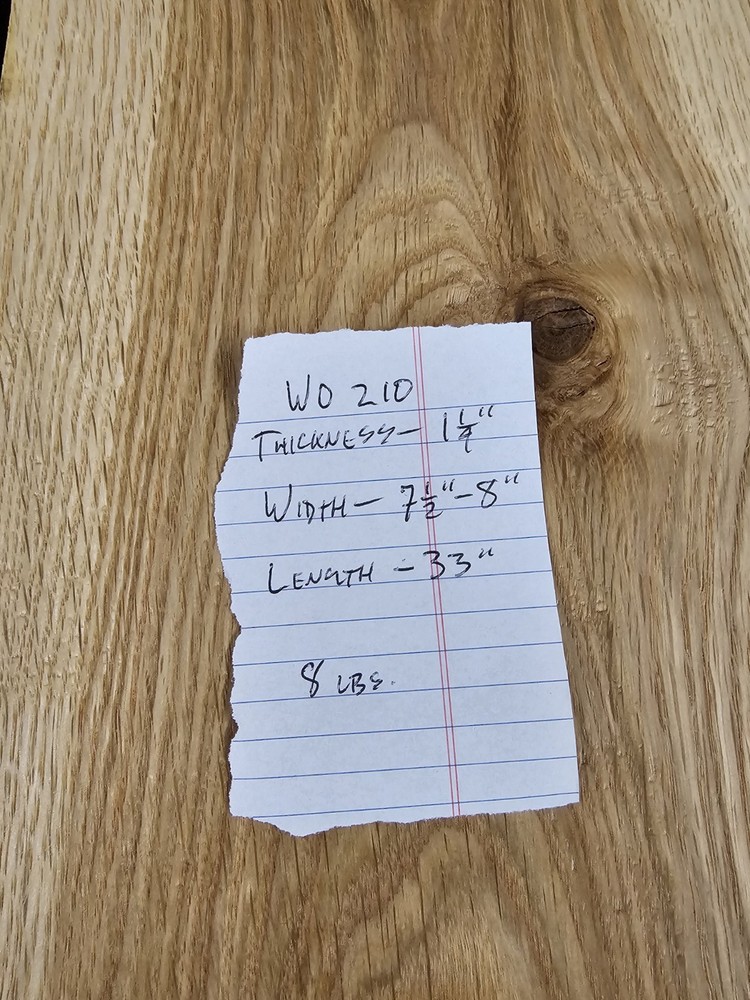 WO 210
THICKNESS - 1 1/4"
WIDTH - 7 1/2" - 8"
LENGTH - 33"
8 LBS.